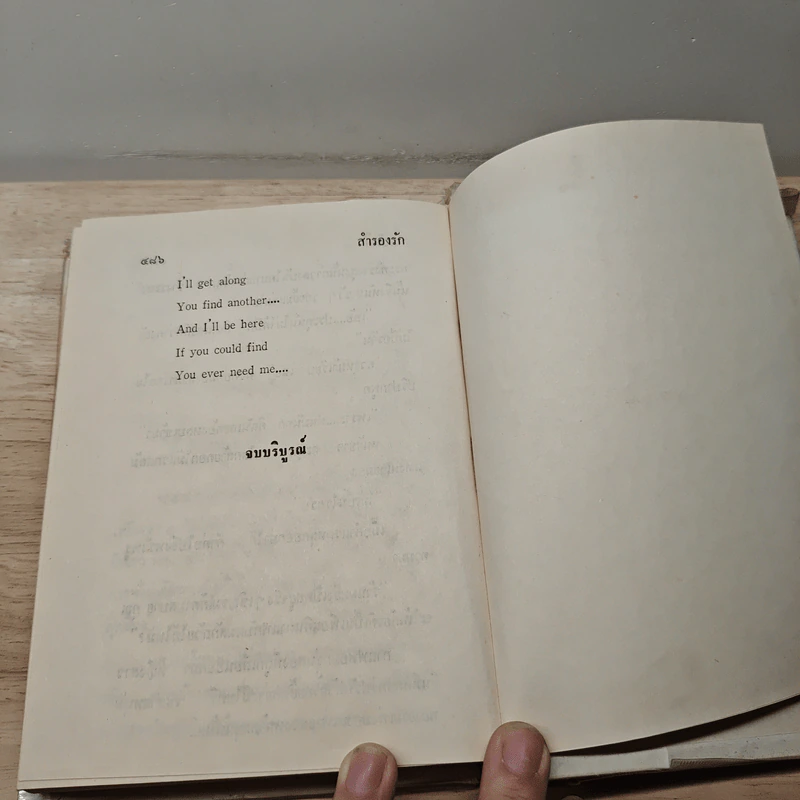 ๔๘๖
สำรองรัก
I'll get along
You find another....
And I'll be here
If you could find
You ever need me....
จบบริบูรณ์